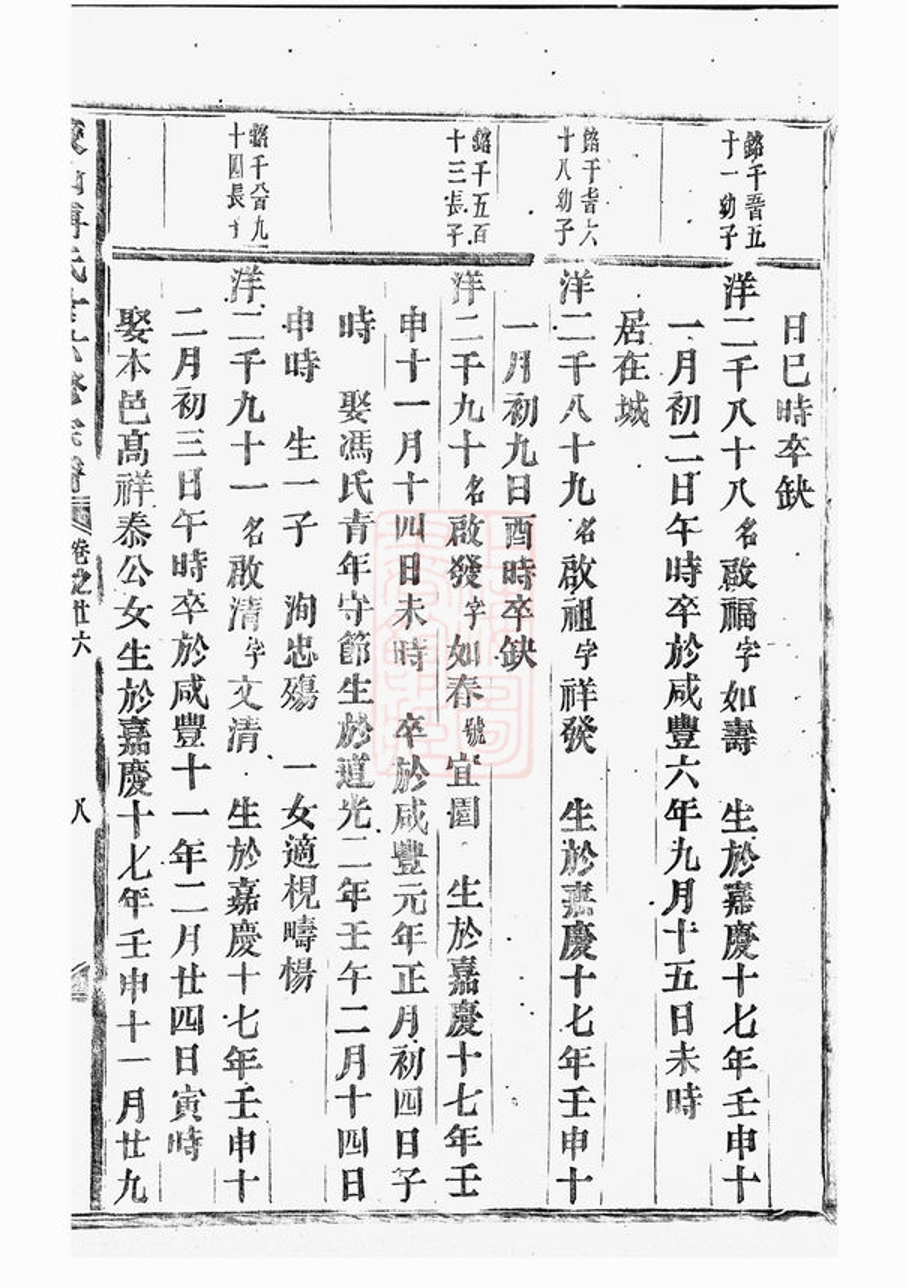 日巳時卒缺
銘千吾五
十一幼子
洋二千八十八名啟福字如壽　生於嘉慶十七年壬申十
一月初二日午時卒於咸豐六年九月十五日未時
居在城
銘千吉六
十八幼子
洋二千八十九名啟祖字祥發　生於嘉慶十七年壬申十
一月初九日酉時卒缺
銘千五百
十三長子
洋二千九十名啟發字如春號宜園　生於嘉慶十七年壬
申十一月十四日未時　卒於咸豐元年正月初四日子
時　娶馮氏青年守節生於道光二年壬午二月十四日
申時　生一子　洵忠殤　一女適梘疇楊
銘千八百九
十四長子
洋二千九十一名啟清字文清　生於嘉慶十七年壬申十
二月初三日午時卒於咸豐十一年二月廿四日寅時
娶本邑高祥泰公女生於嘉慶十七年壬申十一月廿九
卷之廿六
八